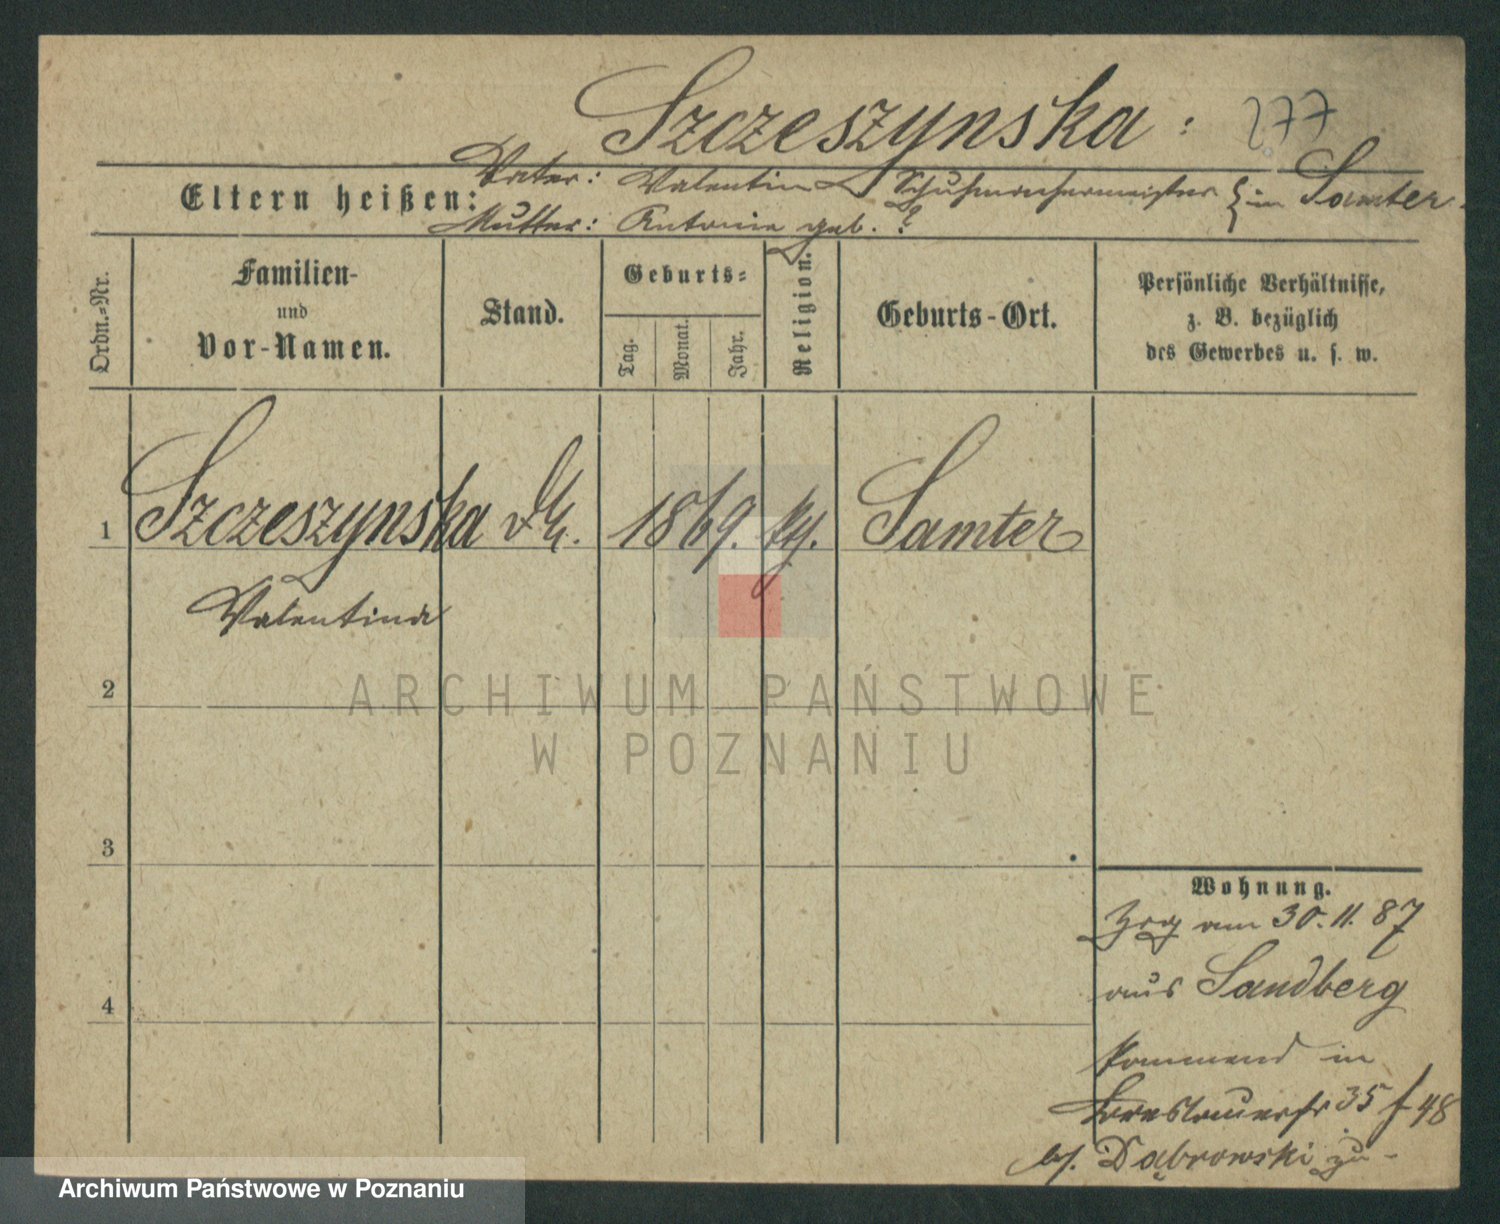 Szczeszynska: 277
Vater: Valentin Schuhmachermeister } in Samter.
Eltern heißen:
Mutter: Antonie geb. ?
Ordn.-Nr.
Familien-
und
Vor-Namen.
Stand.
Geburts-
Tag.
Monat.
Jahr.
Religion.
Geburts-Ort.
Persönliche Verhältnisse,
z. B. bezüglich
des Gewerbes u. s. w.
1 Szczeszynska 1869. Samter
Valentina
2
3
4
Wohnung.
Zzg am 30.11.87
aus Sandberg
kommend in
35 48
bei Dąbrowski zu-
ARCHIWUM PAŃSTWOWE
W POZNANIU
Archiwum Państwowe w Poznaniu